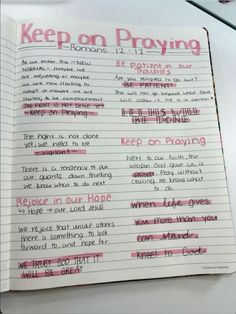 Keep on Praying
Romans 12:12
As we enter the "NEW
NORMAL" maybe we
are adjusting or maybe
we are now starting to
adapt or maybe we are
starting to be complacement
THE FIGHT IS NOT DONE YET
Keep on Praying
The fight is not done
yet we need to be
vigilant
There is a tendency to put
our guards down thinking
we know what to do next
Rejoice in our Hope
↳ Hope → our Lord Jesus
We rejoice that unlike others
there is something to look
forward to, and hope for
WE TRUST GOD THAT IT
WILL BE GREAT
Be Patient in our
troubles
Are you tempted to give out?
BE PATIENT!
This will not go beyond what God
will allow it. He is in control
IF IT IS HIS WILL
BE DONE
Keep on Praying
Next to our faith, the
weapon God gave us is
prayer. Pray without
ceasing. He knows what
to do
When life gives
you more than you
can stand
kneel to God